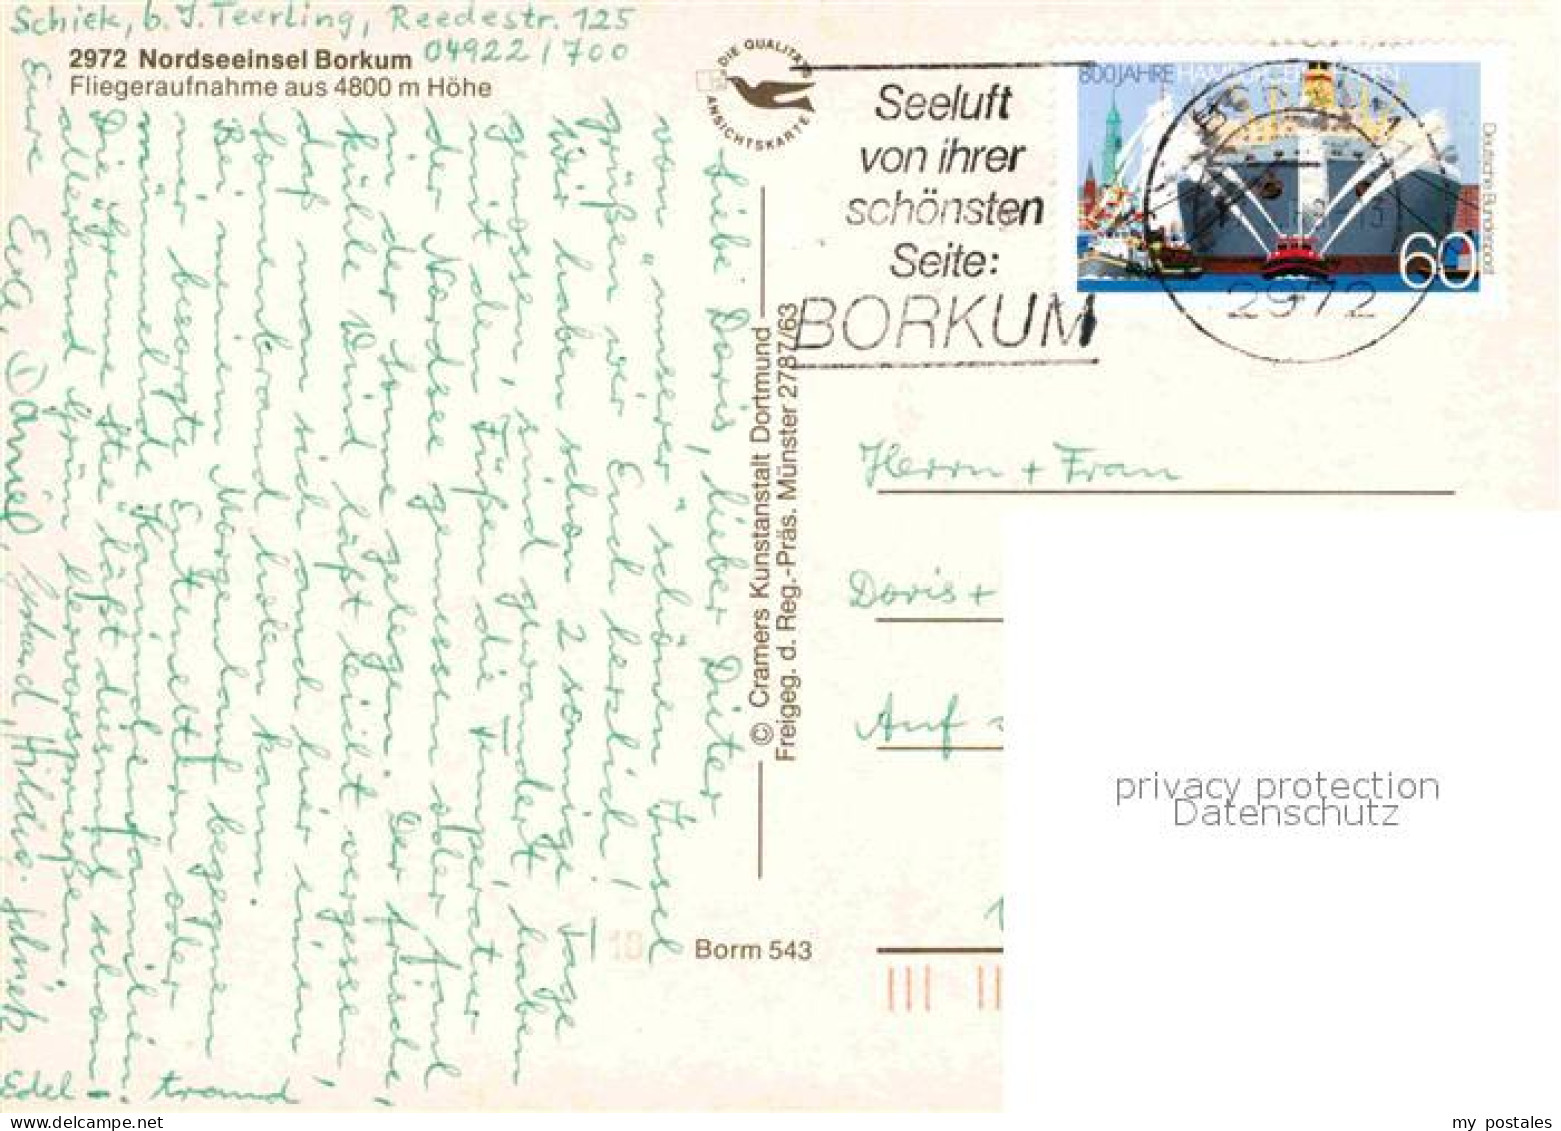 Schiek, b. J. Teerling, Reedestr. 125
04922/700
2972 Nordseeinsel Borkum
Fliegeraufnahme aus 4800 m Höhe
DIE QUALITÄTS
ANSICHTSKARTE
Seeluft
von ihrer
schönsten
Seite:
BORKUM
800 JAHRE HAMBURGER HAFEN
Deutsche Bundespost
60
BORKUM 1
2972
Liebe Doris, lieber Dieter
von "unserer" schönen Insel
grüßen wir Euch herzlich!
Wir haben schon 2 sonnige Tage
genossen, sind gewandert, haben
mit den Füßen die Temperatur
der Nordsee gemessen oder faul
in der Sonne gelegen. Der frische,
kühle Wind läßt leicht vergessen,
daß man sich auch hier einen
Sonnenbrand holen kann.
Bei meinem Morgenlauf begegnen
mir besorgte Enteneltern oder
mümmelnde Kaninchenfamilien.
Die "Greune Stee" läßt diesmal schon
allerhand Grün hervorsprießen.
Eure Eva, Daniel, Gerhard, Hildus. Schiek
Edel +. traud
© Cramers Kunstanstalt Dortmund
Freigeg. d. Reg.-Präs. Münster 2787/63
Borm 543
Herrn + Frau
Doris +
Auf
privacy protection
Datenschutz
my postales